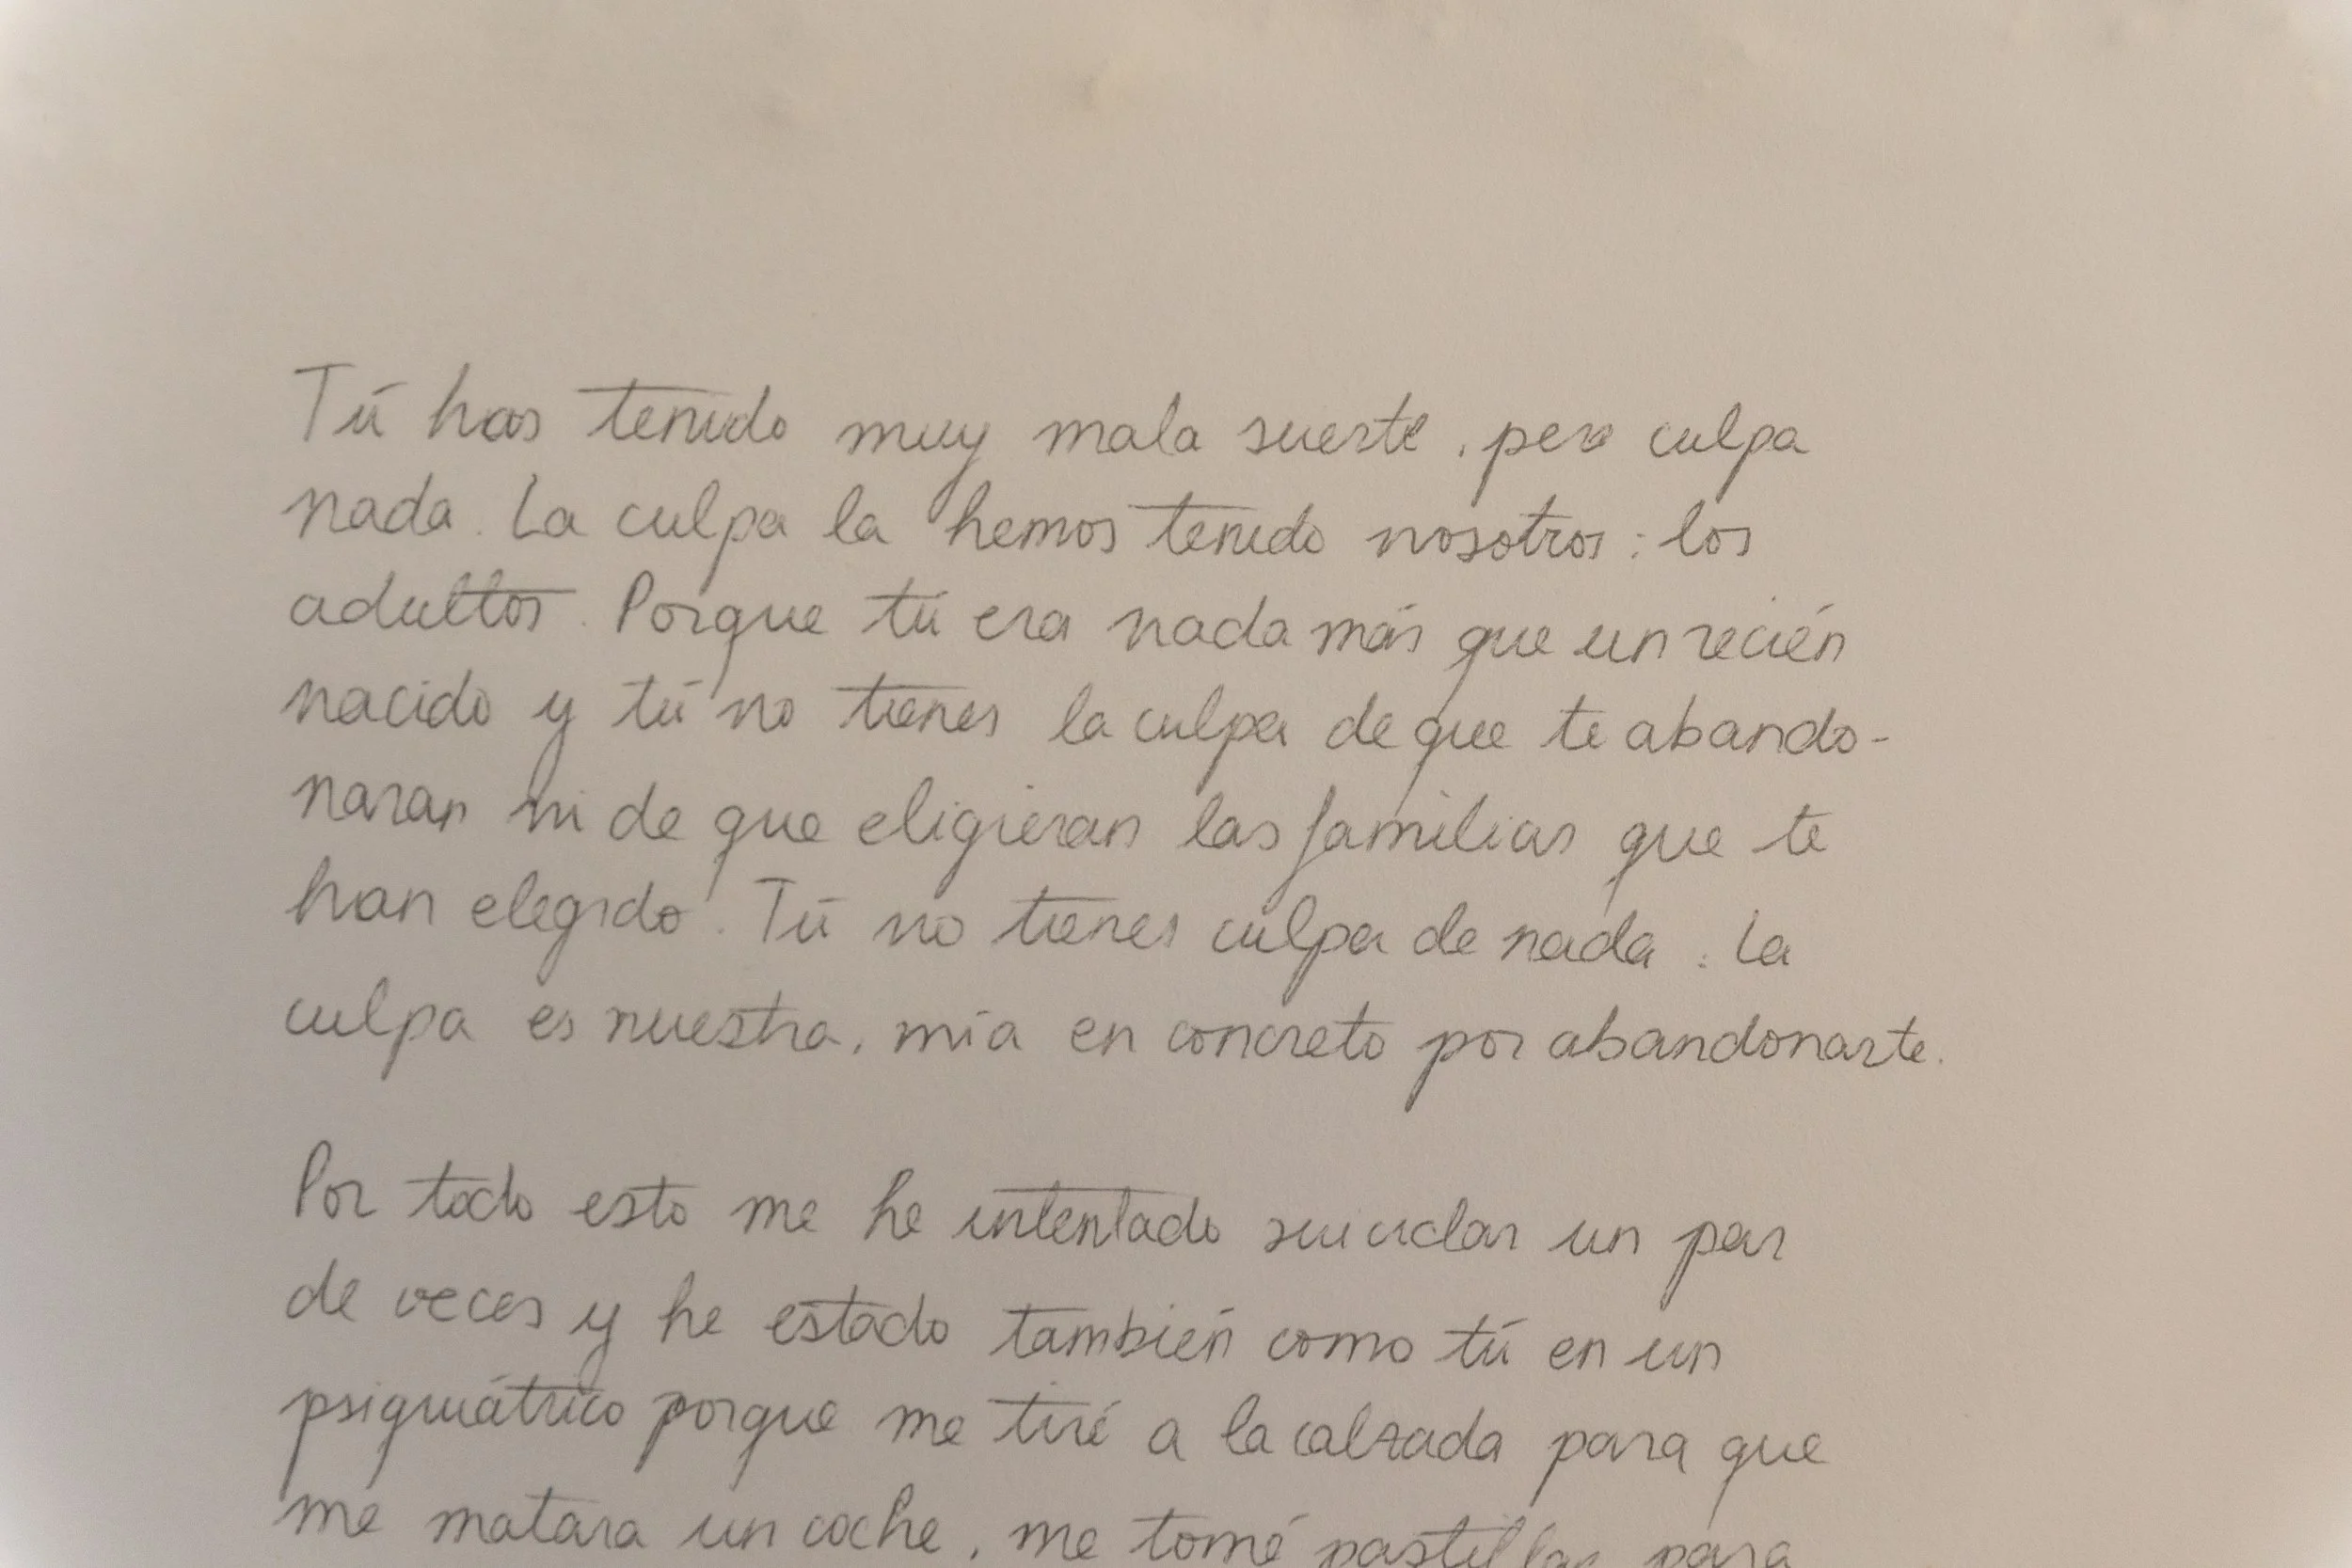 Tú has tenido muy mala suerte, pero culpa
nada. La culpa la hemos tenido nosotros: los
adultos. Porque tú era nada más que un recién
nacido y tú no tienes la culpa de que te abando-
naran ni de que eligieran las familias que te
han elegido. Tú no tienes culpa de nada. La
culpa es nuestra, mía en concreto por abandonarte.
Por todo esto me he intentado suicidar un par
de veces y he estado también como tú en un
psiquiátrico porque me tiré a la calzada para que
me matara un coche, me tomé pastillas para